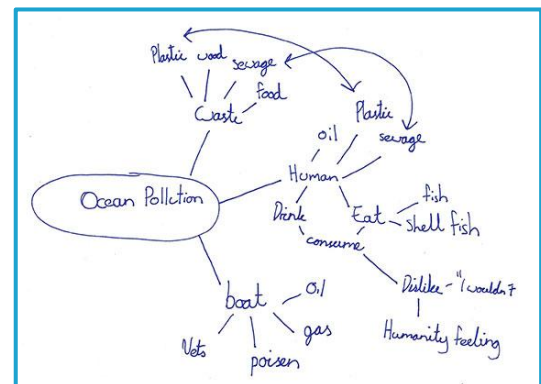 Plastic wood sewage
food
Waste
Plastic
sewage
oil
Human
Ocean Pollution
Drink
Eat
fish
shell fish
consume
Dislike - "I wouldn't
Humanity feeling
boat
oil
gas
poisen